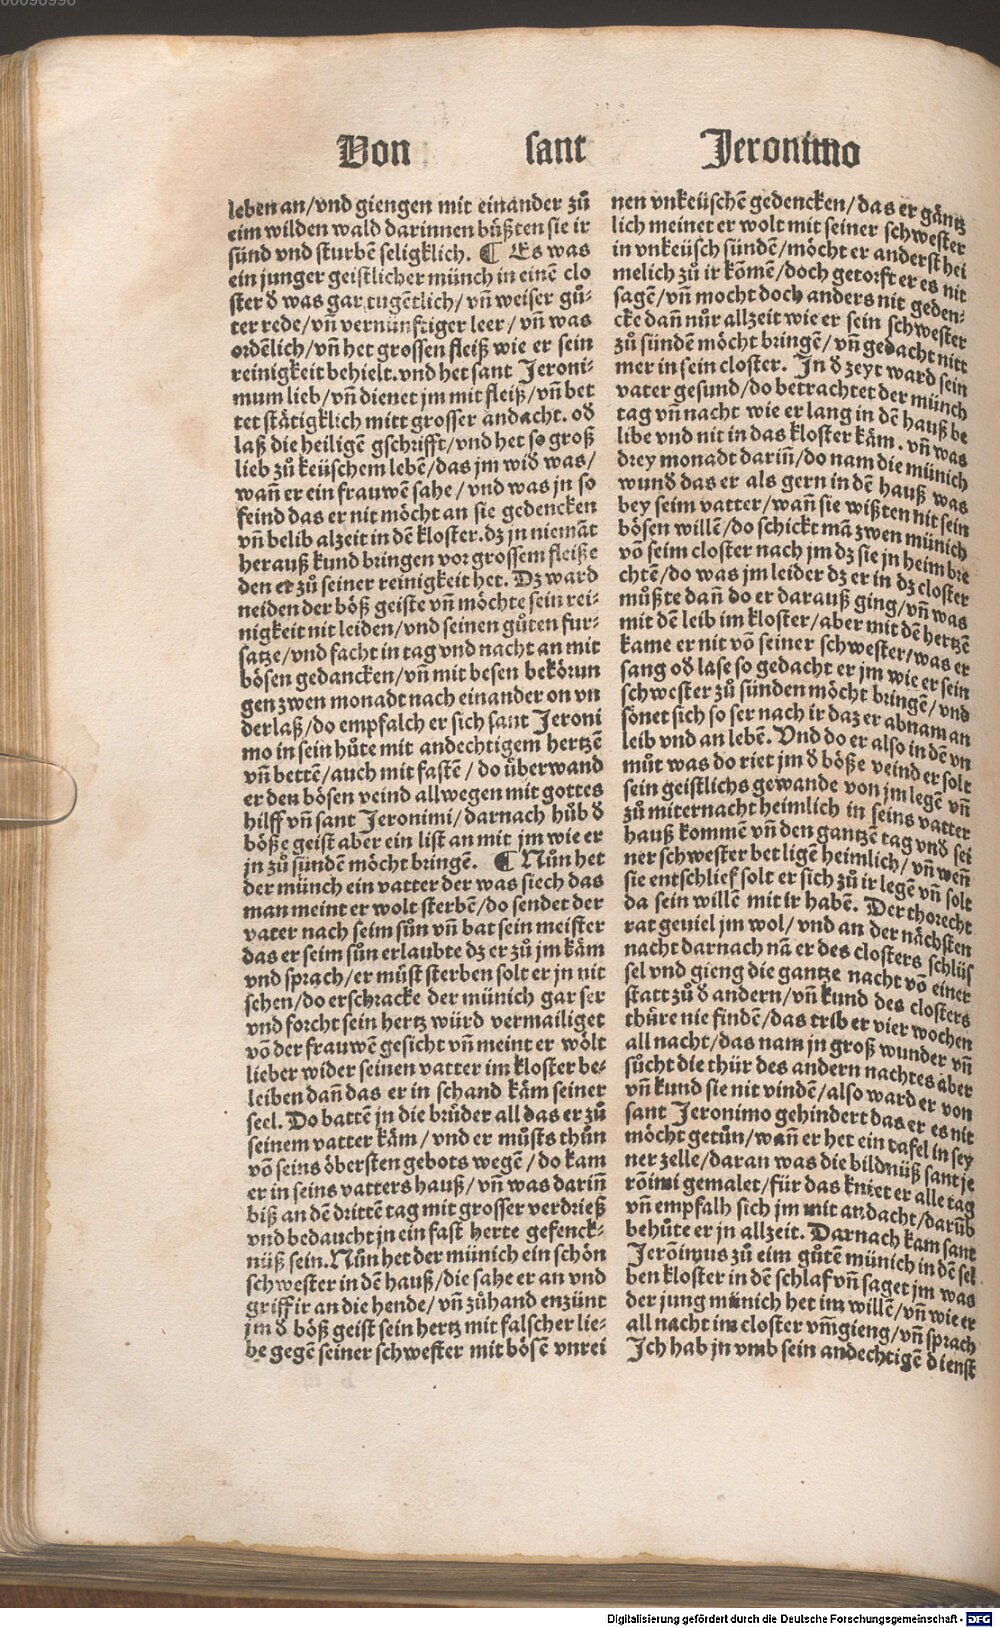 00090996
Von sant Jeronimo
leben an/vnd giengen mit einander zů
eim wilden wald darinnen bůßten sie ir
sünd vnd sturbē seligklich. ¶ Es was
ein junger geistlicher münch in einē clo
ster d̕ was gar tugētlich/vn̄ weiser gů⸗
ter rede/vn̄ vernünfftiger leer/vn̄ was
ordēlich/vn̄ het grossen fleiß wie er sein
reinigkeit behielt.vnd het sant Jeroni⸗
mum lieb/vn̄ dienet jm mit fleiß/vn̄ bet
tet stätigklich mitt grosser andacht.od̕
laß die heiligē gschrifft/vnd het so groß
lieb zů keüschem lebē/das jm wid̕ was/
wan̄ er ein frauwē sahe/vnd was jn so
feind das er nit möcht an sie gedencken
vn̄ belib alzeit in dē kloster.dz jn niemāt
herauß kund bringen vor grossem fleiße
den er zů seiner reinigkeit het. Dz ward
neiden der böß geiste vn̄ möchte sein rei⸗
nigkeit nit leiden/vnd seinen gůten fur⸗
satze/vnd facht in tag vnd nacht an mit
bösen gedancken/vn̄ mit besen bekörun
gen zwen monadt nach einander on vn
derlaß/do empfalch er sich sant Jeroni
mo in sein hůte mit andechtigem hertzē
vn̄ bettē/auch mit fastē/do ůberwand
er den bösen veind allwegen mit gottes
hilff vn̄ sant Jeronimi/darnach hůb d̕
böße geist aber ein list an mit jm wie er
jn zů sündē möcht bringē. ¶ Nůn het
der münch ein vatter der was siech das
man meint er wolt sterbē/do sendet der
vater nach seim sůn vn̄ bat sein meister
das er seim sůn erlaubte dz er zů jm käm
vnd sprach/er můst sterben solt er jn nit
sehen/do erschracke der münich gar ser
vnd forcht sein hertz würd vermailiget
vō der frauwē gesicht vn̄ meint er wölt
lieber wider seinen vatter im kloster be⸗
leiben dan̄ das er in schand käm seiner
seel. Do battē jn die brůder all das er zů
seinem vatter käm/vnd er můsts thůn
vō seins öbersten gebots wegē/do kam
er in seins vatters hauß/vn̄ was darin̄
biß an dē dritten tag mit grosser verdrieß
vnd bedaucht jn ein fast herte gefenck⸗
nüß sein.Nůn het der münich ein schön
schwester in dē hauß/die sahe er an vnd
griff ir an die hende/vn̄ zůhand enzünt
jm d̕ böß geist sein hertz mit falscher lie⸗
be gegē seiner schwester mit bösē vnrei
nen vnkeüschē gedencken/das er gäntz
lich meinet er wolt mit seiner schwester
in vnkeüsch sündē/möcht er anderst hei
melich zů ir kömē/doch getorft er es nit
sagē/vn̄ mocht doch anders nit geden⸗
cke dan̄ nůr allzeit wie er sein schwester
zů sünden möcht bringē/vn̄ gedacht nitt
mer in sein closter. In d̕ zeyt ward sein
vater gesund/do betrachtet der münch
tag vn̄ nacht wie er lang in dē hauß be
libe vnd nit in das kloster käm.vn̄ was
drey monadt darin̄/do nam die münich
wund̕ das er als gern in dē hauß was
bey seim vatter/wan̄ sie wißten nit sein
bösen willē/do schickt mā zwen münich
vō seim closter nach jm dz sie jn heim bre
chtē/do was jm leider dz er in dz closter
můßte dan̄ do er darauß ging/vn̄ was
mit dē leib im kloster/aber mit dē hertzē
kame er nit vō seiner schwester/was er
sang od̕ lase so gedacht er jm wie er sein
schwester zů sünden möcht bringē/vnd
sönet sich so ser nach ir daz er abnam an
leib vnd an lebē. Vnd do er also in dē vn
můt was do riet jm d̕ böße veind er solt
sein geistlichs gewande von jm legē vn̄
zů miternacht heimlich in seins vatter
hauß kommē vn̄ den gantzē tag vnd sei
ner schwester bet ligē heimlich/vn̄ wen̄
sie entschlief solt er sich zů ir legē vn̄ solt
da sein willē mit ir habē. Der thorecht
rat geuiel jm wol/vnd an der nächsten
nacht darnach nā er des closters schlüs
sel vnd gieng die gantze nacht vō einer
statt zů d̕ andern/vn̄ kund des closters
thüre nie findē/das trib er vier wochen
all nacht/das nam jn groß wunder vn̄
sůcht die thür des andern nachtes aber
vn̄ kund sie nit vindē/also ward er von
sant Jeronimo gehindert das er es nit
möcht getůn/wan̄ er het ein tafel in sey
ner zelle/daran was die bildnüß sant je
rōimi gemalet/für das kniet er alle tag
vn̄ empfalh sich jm mit andacht/darūb
behůte er jn allzeit. Darnach kam sant
Jerōimus zů eim gůtē münich in dē sel
ben kloster in dē schlaf vn̄ saget jm was
der jung münich het im willē/vn̄ wie er
all nacht im closter vm̄gieng/vn̄ sprach
Ich hab jn vmb sein andechtigē dienst
Digitalisierung gefördert durch die Deutsche Forschungsgemeinschaft - DFG